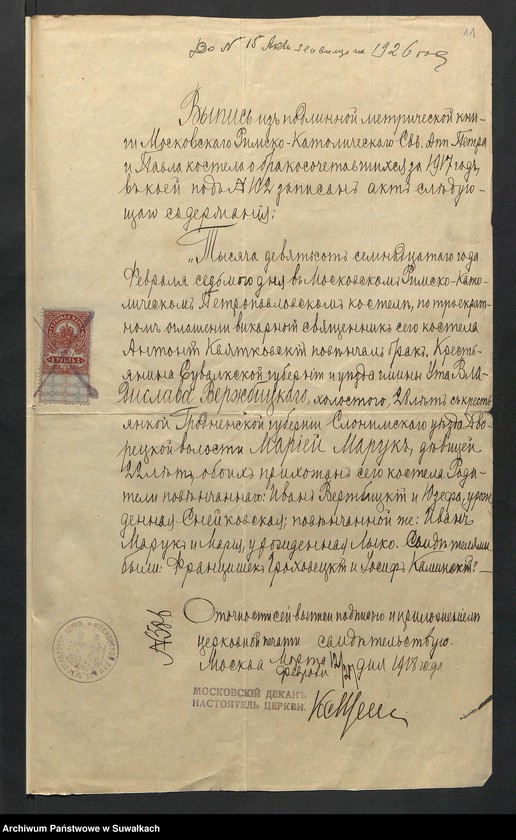 До № 15 1926 год
11
Выпись изъ подлинной метрической кни-
ги Московскаго Римско-Католическаго Свв. Ап. Петра
и Павла костела о бракосочетавшихся за 1917 годъ,
въ коей подъ № 102 записанъ актъ слѣдую-
щаго содержанія:
„Тысяча девятьсотъ семнадцатаго года
Февраля седьмого дня въ Московскомъ Римско-Като-
лическомъ Петропавловскомъ костелѣ, по троекрат-
номъ оглашеніи викарный священникъ сего костела
Антоній Квятковскій повѣнчалъ бракъ. Кресть-
янина Сувалкской губерніи и уѣзда гмины Влa-
дислава Вержбицкаго, холостого, лѣтъ съ крестъ-
янкой Гродненской губерніи Слонимскаго уѣзда Дво-
рецкой волости Маріей Марукъ, дѣвицей
22 лѣтъ, обоихъ прихожанъ сего костела. Роди-
тели повѣнчаннаго: Иванъ Вержбицкій и Юзефа, урож-
денная Снейковская; повѣнчанной же: Иванъ
Марукъ и Марія, урожденная Лыко. Свидѣтелями
были: Францишекъ Гроховецкій и Іосифъ Каминскій.
№ 586
О точности сей выписи подписью и приложеніемъ
церковной печати свидѣтельствую.
Москва Марта 12/
Февраля 27 дня 1918 года
МОСКОВСКІЙ ДЕКАНЪ
НАСТОЯТЕЛЬ ЦЕРКВИ.
1 РУБЛЬ 1
Archiwum Państwowe w Suwałkach